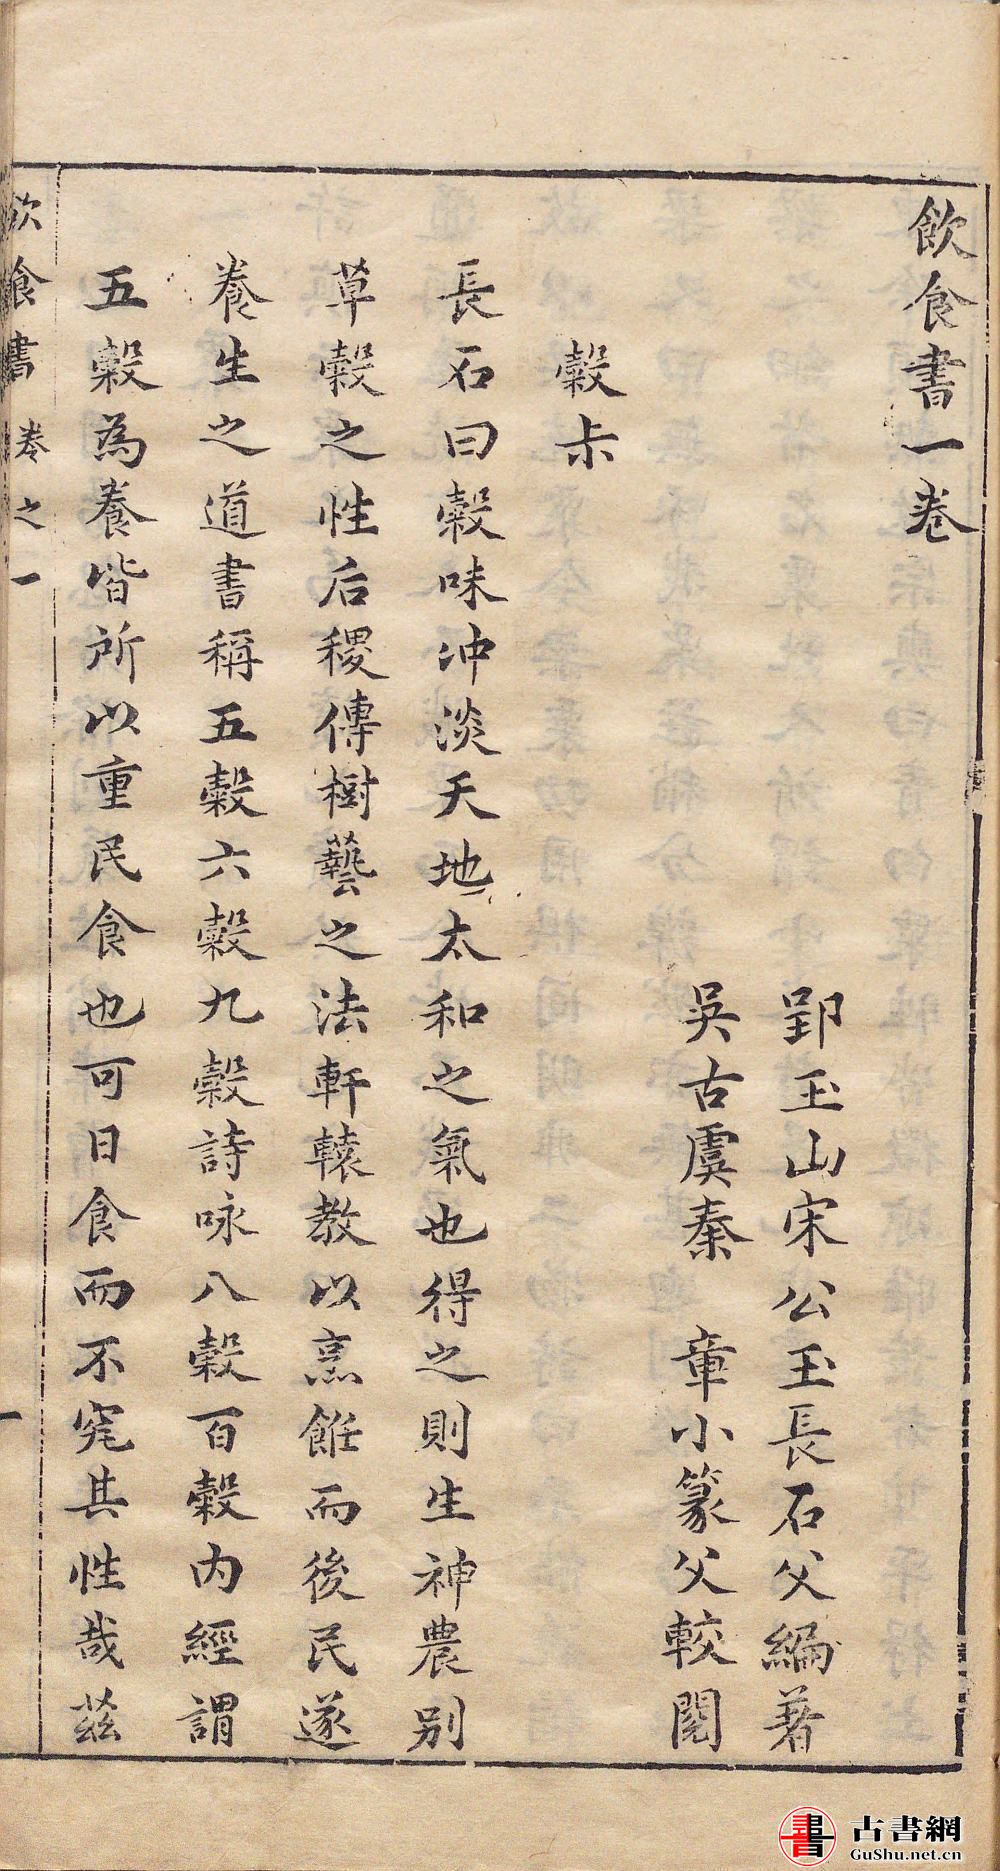 飲食書一卷
郢玉山宋公玉長石父編著
吳古虞秦　章小篆父較閱
穀尗
長石曰穀味冲淡天地太和之氣也得之則生神農別
草穀之性后稷傳樹藝之法軒轅教以烹餁而後民遂
養生之道書稱五穀六穀九穀詩咏八穀百穀内經謂
五穀為養皆所以重民食也可日食而不究其性哉茲
飲食書　卷之一　一
書
古書網
GuShu.net.cn